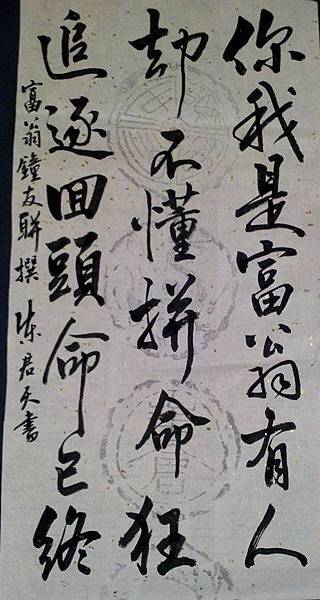 你我是富翁有人
却不懂拼命狂
追逐回頭命已終
富翁鐘友聯撰 陳君天書